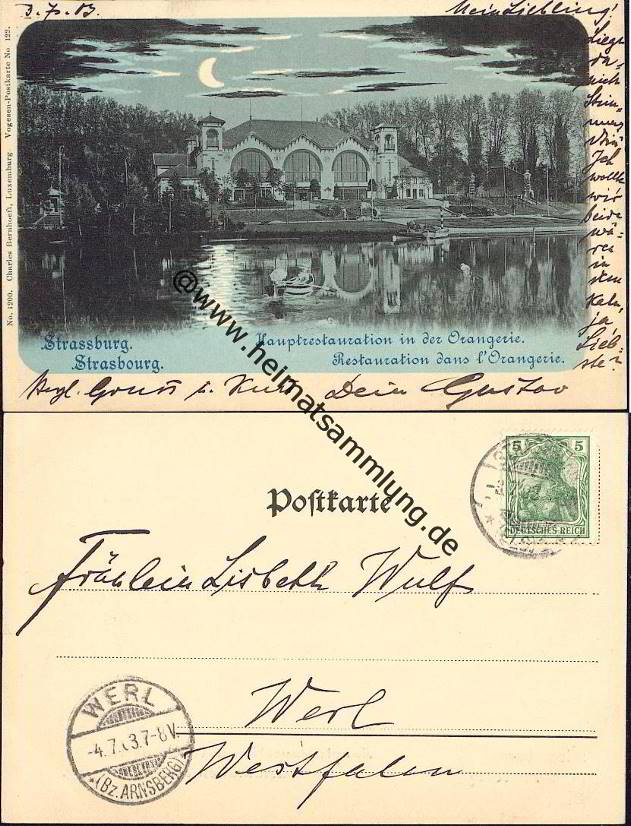 3.7.03.
Mein Liebling!
Liege
da
nich
Stim-
mung
drin?
Ich
wollte
wir
beide
wä-
ren
in
dem
Kahn,
ja
Lieb-
ste?
No. 1200. Charles Bernhoeft, Luxemburg Vogesen-Postkarte No 122.
Strassburg.
Strasbourg.
Hauptrestauration in der Orangerie.
Restauration dans l'Orangerie.
Hrzl. Gruss u. Kuss Dein Gustav
@www.heimatsammlung.de
Postkarte
5 5
DEUTSCHES REICH
Fräulein Lisbeth Wulf
Werl
Westfalen
WERL
-4.7.03.7-8V.
*(Bz.ARNSBERG)*